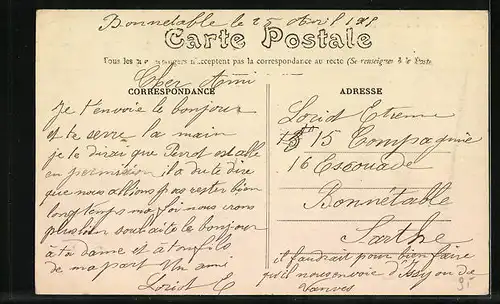 Bonnetable le 25 Avril 191
Carte Postale
Tous les pays étrangers n'acceptent pas la correspondance au recto (Se renseigner à la Poste
Cher Ami
CORRESPONDANCE
Je t'envoie le bonjour
et te serre la main
je te dirai que Perrot est allé
en permission il a du te dire
que nous allions pas rester bien
longtemps ma foi nous irons
plus loin souhaite le bonjour
à ta dame et à ton fils
de ma part Un ami
Loriot E
ADRESSE
Loriot Etienne
15 Compagnie
16 Escouade
Bonnétable
Sarthe
il faudrait pour bien faire
qu'il nous envoie d'Issy ou de
Vanves